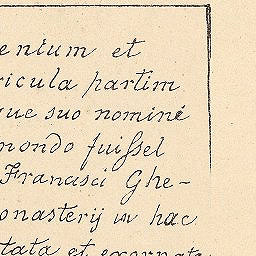 enium et
ricula partim
que suo nominé
mondo fuissel
Francisci Ghe-
onasterij in hac
tata et exornata